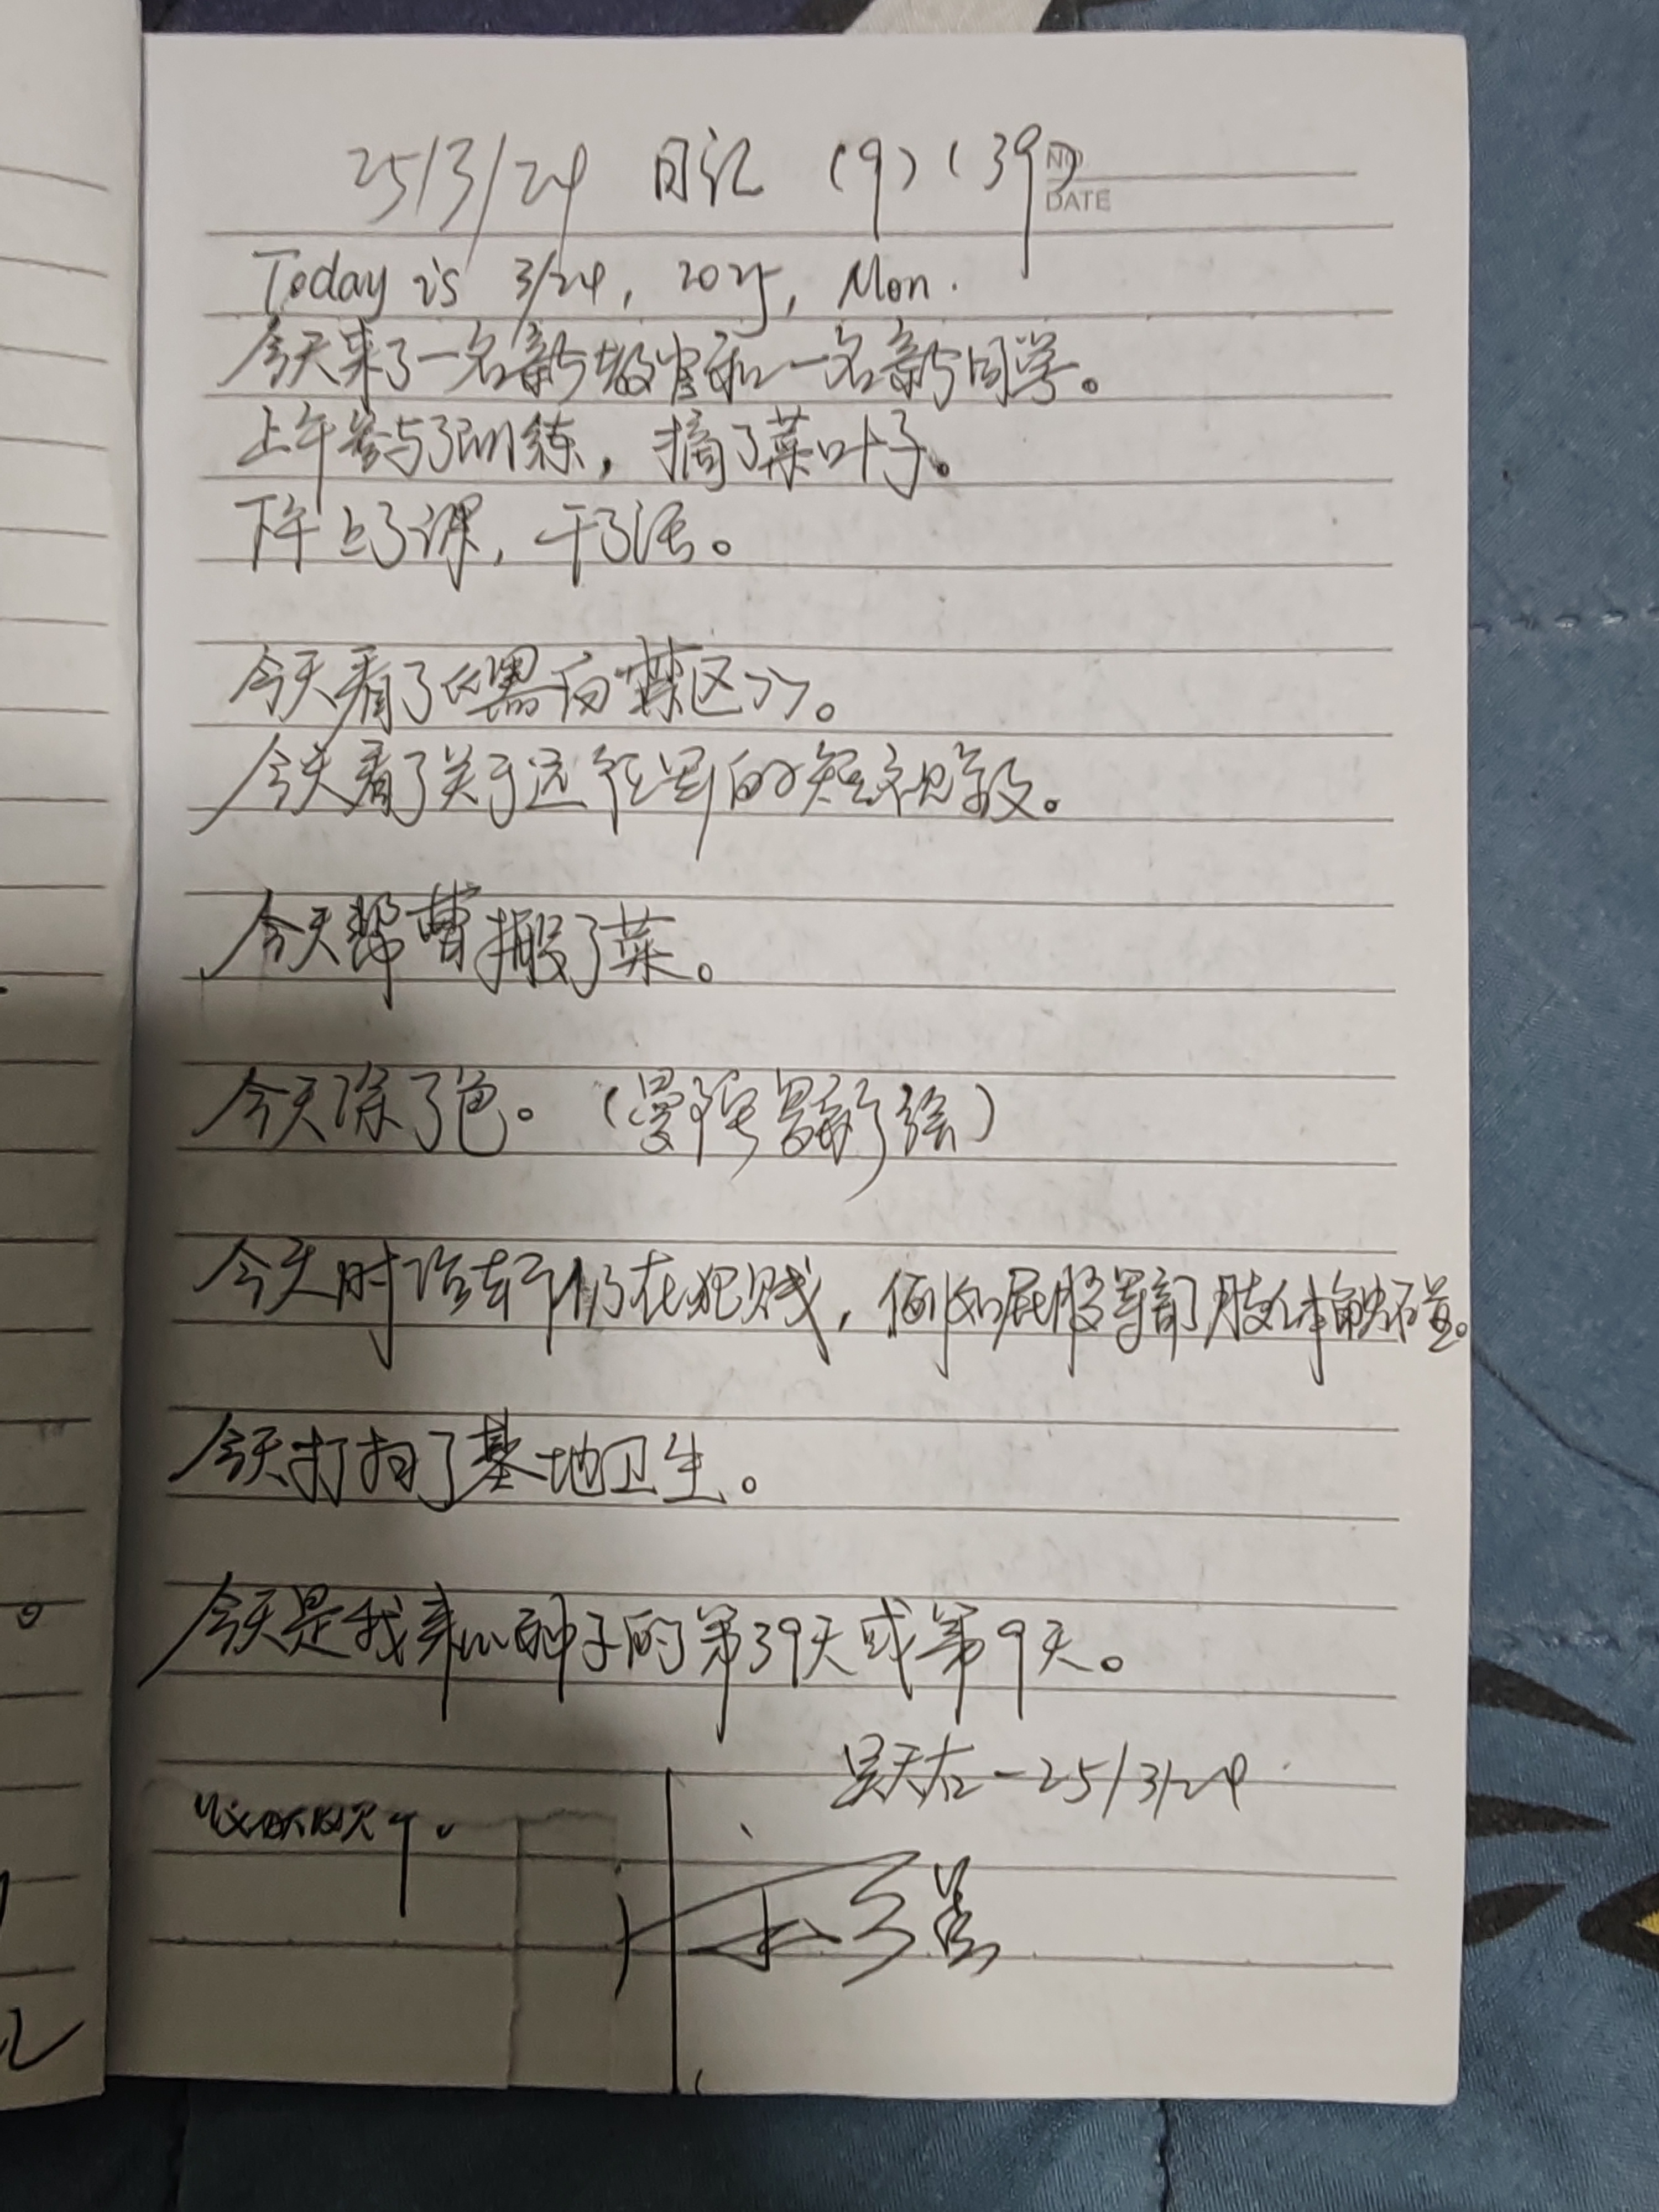 25/3/24 日记 (9) (39)
NO.
DATE
Today is 3/24, 2025, Mon.
今天来了一名新教官和一名新同学。
上午参与了训练，摘了菜叶子。
下午上了课，干了活。
今天看了《黑白禁区》。
今天看了关于远征军的短视频。
今天帮曹搬了菜。
今天涂了色。（曼陀罗
今天时 仍在犯贱，例如屁股等部肢体触碰。
今天打扫了基地卫生。
今天是我来心种子的第39天或第9天。
吴天右-25/3/24